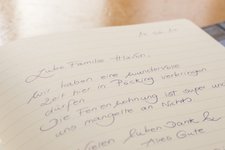 Liebe Familie
wir haben eine wundervolle
Zeit hier in Pöcking verbringen
dürfen
Die Ferienwohnung ist super und
uns mangelte an Nichts
Vielen lieben Dank
Alles Gute